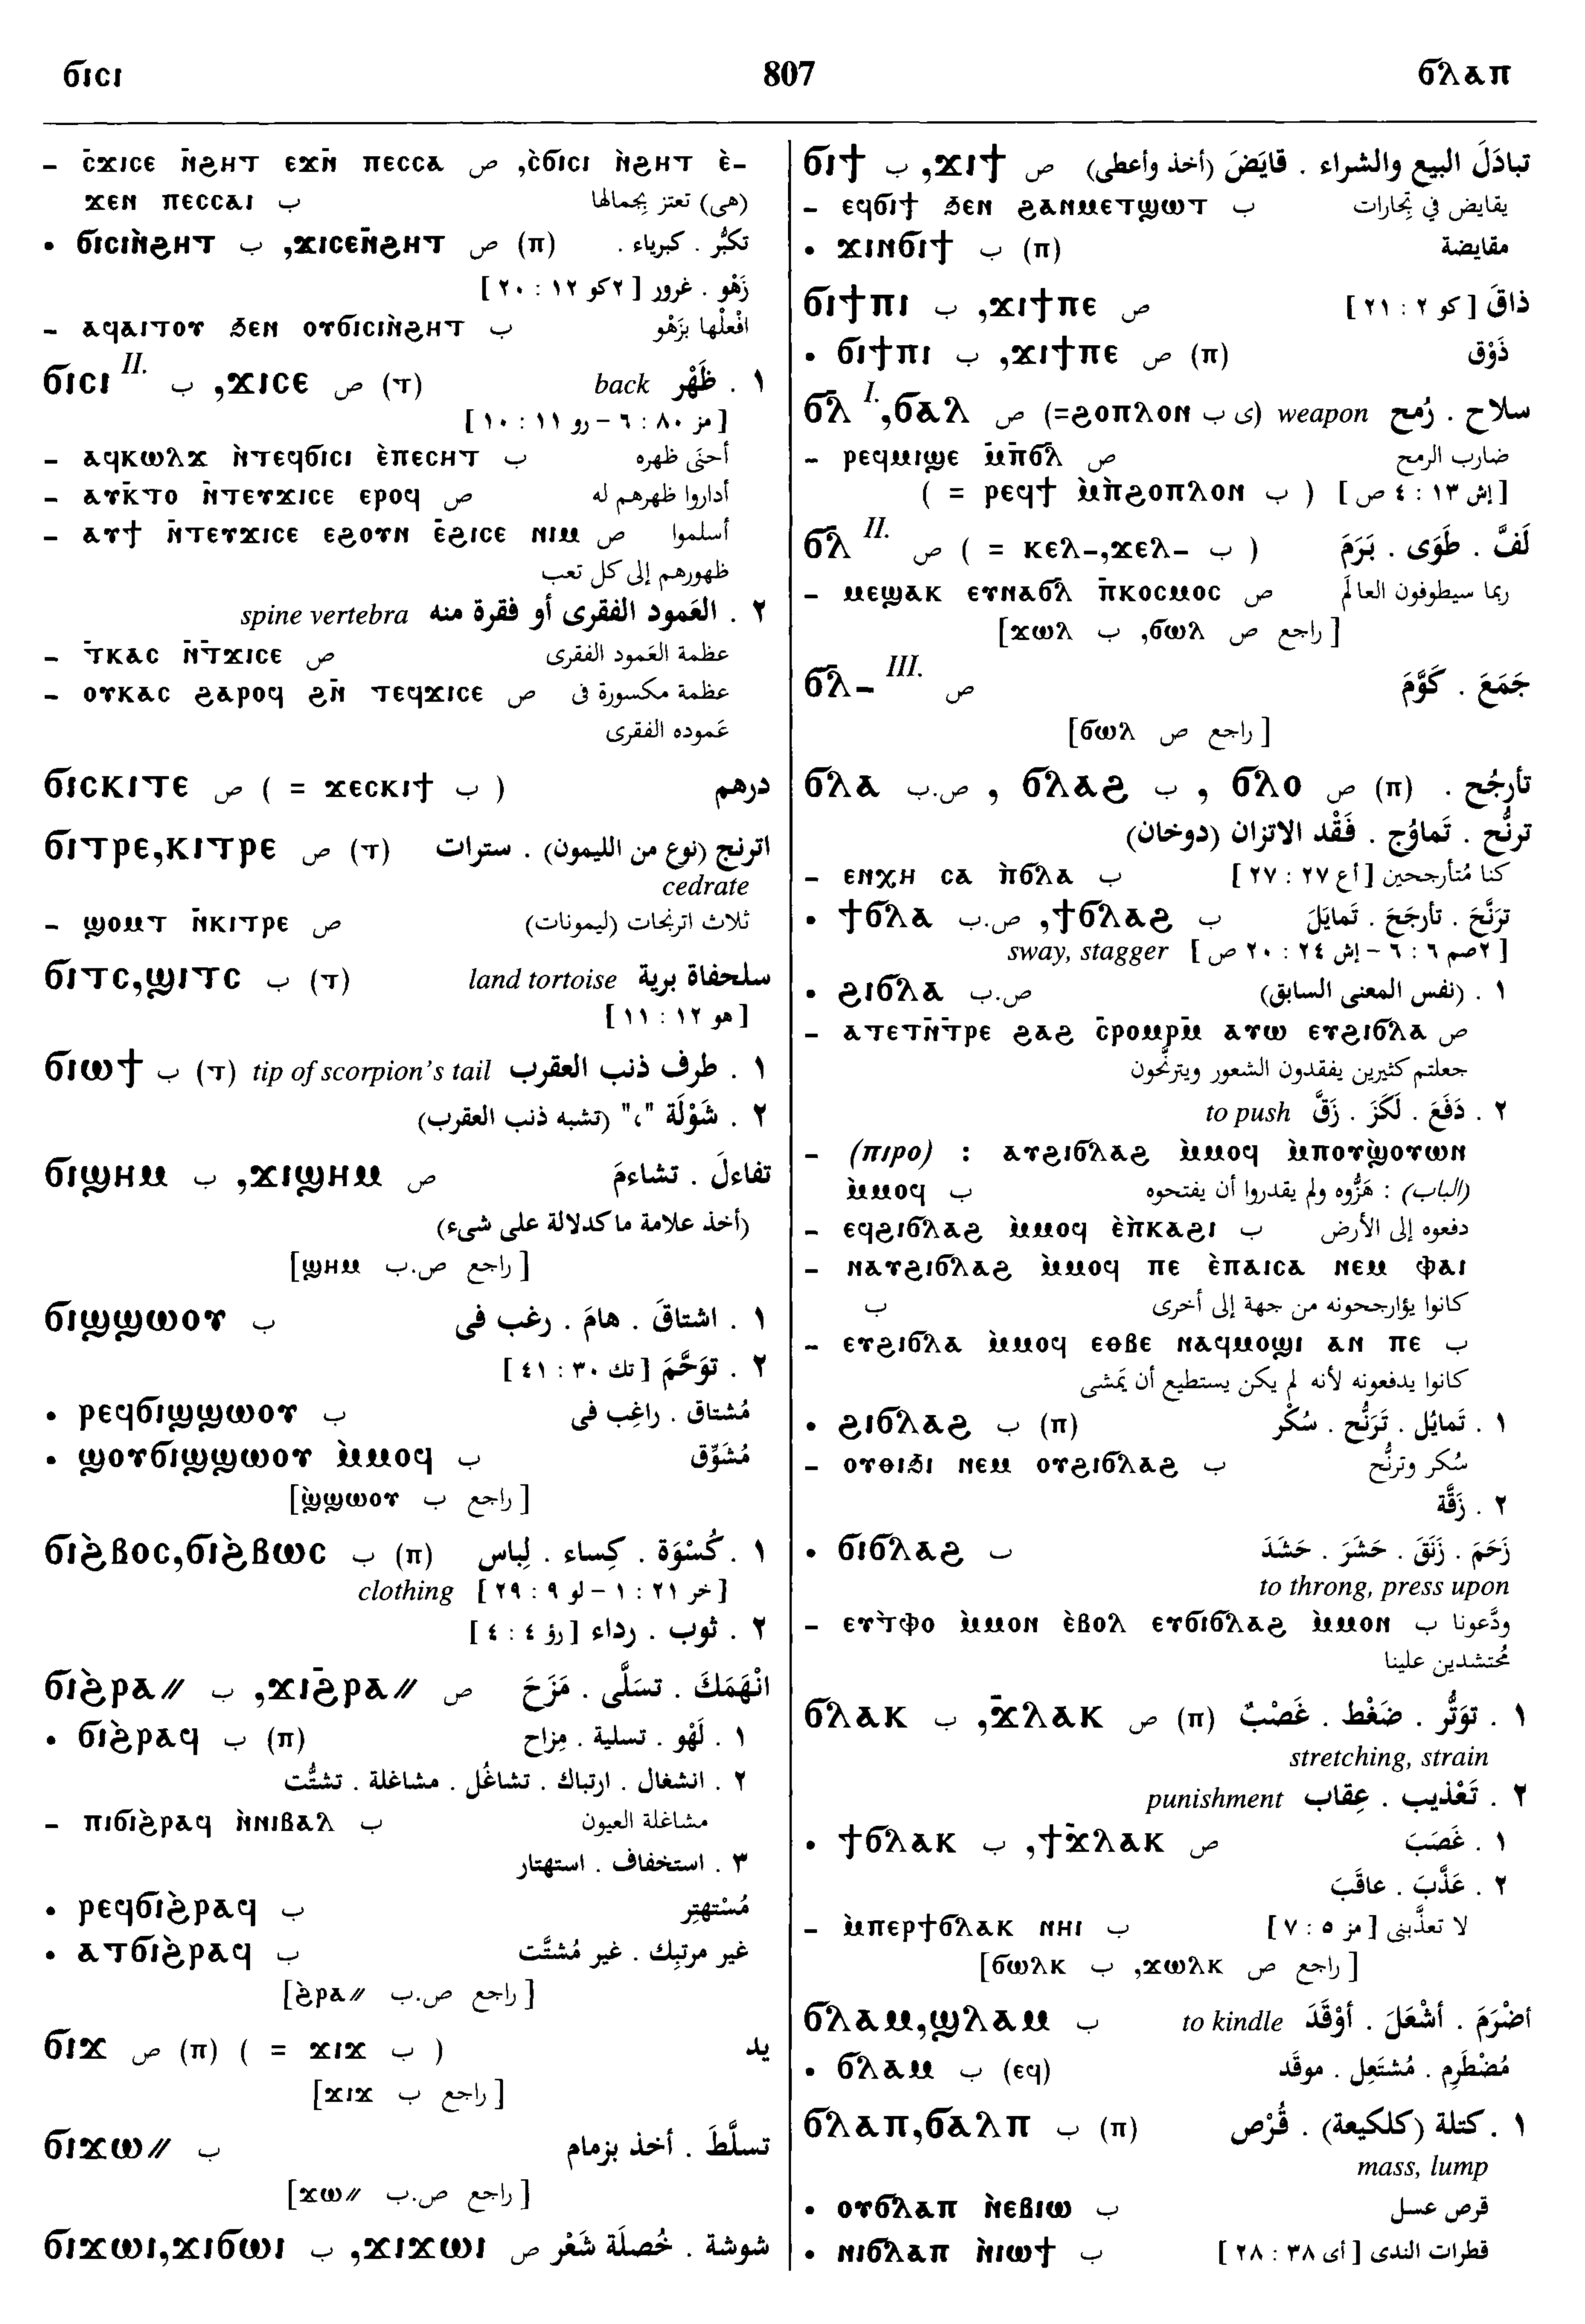 ϭⲓⲥⲓ 807 ϭⲗⲁⲡ
– ⲥ̄ϫⲓⲥⲉ ⲛ̄ϩⲏⲧ ⲉϫⲛ̄ ⲡⲉⲥⲥⲁ ص ,ⲥ̀ϭⲓⲥⲓ ⲛ̀ϩⲏⲧ ⲉ̀–
ϫⲉⲛ ⲡⲉⲥⲥⲁⲓ ب (هى) تعتز بِجمالها
• ϭⲓⲥⲓⲛ̀ϩⲏⲧ ب ,ϫⲓⲥⲉⲛ̄ϩⲏⲧ ص (ⲡ) تكبُّر . كبرياء .
زَهْو . غرور [ ٢كو ١٢ : ٢٠ ]
– ⲁϥⲁⲓⲧⲟⲩ ϧⲉⲛ ⲟⲩϭⲓⲥⲓⲛ̀ϩⲏⲧ ب افْعلْها بزَهْو
ϭⲓⲥⲓ II. ب ,ϫⲓⲥⲉ ص (ⲧ) back ١ . ظَهْر
[ مز ٨٠ : ٦ – رو ١١ : ١٠ ]
– ⲁϥⲕⲱⲗϫ ⲛ̀ⲧⲉϥϭⲓⲥⲓ ⲉ̀ⲡⲉⲥⲏⲧ ب أحنَى ظهره
– ⲁⲩⲕ̄ⲧⲟ ⲛ̄ⲧⲉⲩϫⲓⲥⲉ ⲉⲣⲟϥ ص أداروا ظهرهم له
– ⲁⲩϯ ⲛ̄ⲧⲉⲩϫⲓⲥⲉ ⲉϩⲟⲩⲛ ⲉ̄ϩⲓⲥⲉ ⲛⲓⲙ ص أسلموا
ظهورهم إلى كل تعب
spine vertebra ٢ . العَمود الفقرى أو فقرة منه
– ⲧ̄ⲕⲁⲥ ⲛ̄ⲧ̄ϫⲓⲥⲉ ص عظمة العَمود الفقرى
– ⲟⲩⲕⲁⲥ ϩⲁⲣⲟϥ ϩⲛ̄ ⲧⲉϥϫⲓⲥⲉ ص عظمة مكسورة فى
عَموده الفقرى
ϭⲓⲥⲕⲓⲧⲉ ص ( = ϫⲉⲥⲕⲓϯ ب ) درهم
ϭⲓⲧⲣⲉ,ⲕⲓⲧⲣⲉ ص (ⲧ) اترنج (نوع من الليمون) . سترات
cedrate
– ϣⲟⲙⲧ ⲛ̄ⲕⲓⲧⲣⲉ ص ثلاث اترنجات (ليمونات)
ϭⲓⲧⲥ,ϣⲓⲧⲥ ب (ⲧ) land tortoise سلحفاة برية
[ هو ١٢ : ١١ ]
ϭⲓⲱϯ ب (ⲧ) tip of scorpion's tail ١ . طرف ذنب العقرب
٢ . شَوْلَة "،" (تشبه ذنب العقرب)
ϭⲓϣⲏⲙ ب ,ϫⲓϣⲏⲙ ص تفاءلَ . تشاءمَ
(أخذ علامة ما كدلالة على شىء)
[ راجع ص.ب ϣⲏⲙ]
ϭⲓϣϣⲱⲟⲩ ب ١ . اشتاقَ . هامَ . رغب فى
٢ . توَحَّمَ [ تك ٣٠ : ٤١ ]
• ⲣⲉϥϭⲓϣϣⲱⲟⲩ ب مُشتاق . راغِب فى
• ϣⲟⲩϭⲓϣϣⲱⲟⲩ ⲙ̀ⲙⲟϥ ب مُشَوِّق
[ راجع ب ϣ̀ϣⲱⲟⲩ]
ϭⲓϩ̀ⲃⲟⲥ,ϭⲓϩ̀ⲃⲱⲥ ب (ⲡ) ١ . كُسْوَة . كِساء . لِباس
clothing [ خر ٢١ : ١ – لو ٩ : ٢٩ ]
٢ . ثوب . رداء [ رؤ ٤ : ٤ ]
ϭⲓϩ̀ⲣⲁ⫽ ب ,ϫⲓϩ̄ⲣⲁ⫽ ص انْهَمَكَ . تسَلَّى . مَزَحَ
• ϭⲓϩ̀ⲣⲁϥ ب (ⲡ) ١ . لَهْو . تسلية . مِزاح
٢ . انشغال . ارتباك . تشاغُل . مشاغلة . تشتُّت
– ⲡⲓϭⲓϩ̀ⲣⲁϥ ⲛ̀ⲛⲓⲃⲁⲗ ب مشاغلة العيون
٣ . استخفاف . استهتار
• ⲣⲉϥϭⲓϩ̀ⲣⲁϥ ب مُسْتهتِر
• ⲁⲧϭⲓϩ̀ⲣⲁϥ ب غير مرتبِك . غير مُشتَّت
[ راجع ص.ب ϩ̀ⲣⲁ⫽]
ϭⲓϫ ص (ⲡ) ( = ϫⲓϫ ب ) يد
[ راجع ب ϫⲓϫ]
ϭⲓϫⲱ⫽ ب تسلَّطَ . أخذ بزمام
[ راجع ص.ب ϫⲱ⫽]
ϭⲓϫⲱⲓ,ϫⲓϭⲱⲓ ب ,ϫⲓϫⲱⲓ ص شوشة . خُصلَة شَعْر
ϭⲓϯ ب ,ϫⲓϯ ص تبادَلَ البيع والشراء . قايَضَ (أخذ وأعطى)
– ⲉϥϭⲓϯ ϧⲉⲛ ϩⲁⲛⲙⲉⲧϣⲱⲧ ب يقايض في تِجارات
• ϫⲓⲛϭⲓϯ ب (ⲡ) مقايضة
ϭⲓϯⲡⲓ ب ,ϫⲓϯⲡⲉ ص ذاقَ [ كو ٢ : ٢١ ]
• ϭⲓϯⲡⲓ ب ,ϫⲓϯⲡⲉ ص (ⲡ) ذَوْق
ϭⲗ̄ I. ,ϭⲁⲗ ص (=ϩⲟⲡⲗⲟⲛ ى ب) weapon سلاح . رُمح
– ⲣⲉϥⲙⲓϣⲉ ⲙ̄ⲡ̄ϭⲗ̄ ص ضارب الرمح
( = ⲣⲉϥϯ ⲙ̀ⲡ̀ϩⲟⲡⲗⲟⲛ ب ) [ إش ١٣ : ٤ ص ]
ϭⲗ̄ II. ص ( = ⲕⲉⲗ–,ϫⲉⲗ– ب ) لَفَّ . طَوَى . بَرَمَ
– ⲙⲉϣⲁⲕ ⲉⲩⲛⲁϭⲗ̄ ⲡ̄ⲕⲟⲥⲙⲟⲥ ص ربما سيطوفون العالَم
[ راجع ص ϭⲱⲗ, ب ϫⲱⲗ]
ϭⲗ̄– III. ص جَمَعَ . كَوَّمَ
[ راجع ص ϭⲱⲗ]
ϭⲗⲁ ص.ب , ϭⲗⲁϩ ب , ϭⲗⲟ ص (ⲡ) تأرجُح .
ترنُّح . تَماوُج . فَقْد الاتزان (دوخان)
– ⲉⲛⲭⲏ ⲥⲁ ⲡ̀ϭⲗⲁ ب كنا مُتأرجحين [ أع ٢٧ : ٢٧ ]
• ϯϭⲗⲁ ص.ب ,ϯϭⲗⲁϩ ب ترَنَّحَ . تأرجَحَ . تَمايَلَ
sway, stagger [ ٢صم ٦ : ٦ – إش ٢٤ : ٢٠ ص ]
• ϩⲓϭⲗⲁ ص.ب ١ . (نفس المعنى السابق)
– ⲁⲧⲉⲧⲛ̄ⲧⲣⲉ ϩⲁϩ ⲥ̄ⲣⲟⲙⲣⲙ̄ ⲁⲩⲱ ⲉⲩϩⲓϭⲗⲁ ص
جعلتم كثيرين يفقدون الشعور ويترنَّحون
to push ٢ . دَفَعَ . لَكَزَ . زَقَّ
– (ⲡⲓⲣⲟ) : ⲁⲩϩⲓϭⲗⲁϩ ⲙ̀ⲙⲟϥ ⲙ̀ⲡⲟⲩϣ̀ⲟⲩⲱⲛ
ⲙ̀ⲙⲟϥ ب (الباب) : هَزُّوه ولم يقدروا أن يفتحوه
– ⲉϥϩⲓϭⲗⲁϩ ⲙ̀ⲙⲟϥ ⲉ̀ⲡ̀ⲕⲁϩⲓ ب دفعوه إلى الأرض
– ⲛⲁⲩϩⲓϭⲗⲁϩ ⲙ̀ⲙⲟϥ ⲡⲉ ⲉ̀ⲡⲁⲓⲥⲁ ⲛⲉⲙ ⲫⲁⲓ
ب كانوا يؤارجحونه من جهة إلى أخرى
– ⲉⲩϩⲓϭⲗⲁ ⲙ̀ⲙⲟϥ ⲉⲑⲃⲉ ⲛⲁϥⲙⲟϣⲓ ⲁⲛ ⲡⲉ ب
كانوا يدفعونه لأنه لم يكن يستطيع أن يَمشى
• ϩⲓϭⲗⲁϩ ب (ⲡ) ١ . تَمايُل . تَرَنُّح . سُكْر
– ⲟⲩⲑⲓϧⲓ ⲛⲉⲙ ⲟⲩϩⲓϭⲗⲁϩ ب سُكر وترنُّح
٢ . زَقَّة
• ϭⲓϭⲗⲁϩ ب زَحَمَ . زَنَقَ . حَشَرَ . حَشَدَ
to throng, press upon
– ⲉⲩⲧ̀ⲫⲟ ⲙ̀ⲙⲟⲛ ⲉ̀ⲃⲟⲗ ⲉⲩϭⲓϭⲗⲁϩ ⲙ̀ⲙⲟⲛ ب ودَّعونا
مُحتشدين علينا
ϭⲗⲁⲕ ب ,ϫ̄ⲗⲁⲕ ص (ⲡ) ١ . توَتُّر . ضَغْط . غَصْبٌ
stretching, strain
punishment ٢ . تَعْذيب . عِقاب
• ϯϭⲗⲁⲕ ب ,ϯϫ̄ⲗⲁⲕ ص ١ . غَصَبَ
٢ . عَذَّبَ . عاقَبَ
– ⲙ̀ⲡⲉⲣϯϭⲗⲁⲕ ⲛⲏⲓ ب لا تعذِّبنى [ مز ٥ : ٧ ]
[ راجع ص ϫⲱⲗⲕ, ب ϭⲱⲗⲕ]
ϭⲗⲁⲙ,ϣⲗⲁⲙ ب to kindle أضْرَمَ . أشْعَلَ . أوْقَدَ
• ϭⲗⲁⲙ ب (ⲉϥ) مُضْطَرِم . مُشتَعِل . موقَد
ϭⲗⲁⲡ,ϭⲁⲗⲡ ب (ⲡ) ١ . كتلة (كلكيعة) . قُرْص
mass, lump
• ⲟⲩϭⲗⲁⲡ ⲛ̀ⲉⲃⲓⲱ ب قرص عسل
• ⲛⲓϭⲗⲁⲡ ⲛ̀ⲓⲱϯ ب قطرات الندى [ أى ٣٨ : ٢٨ ]